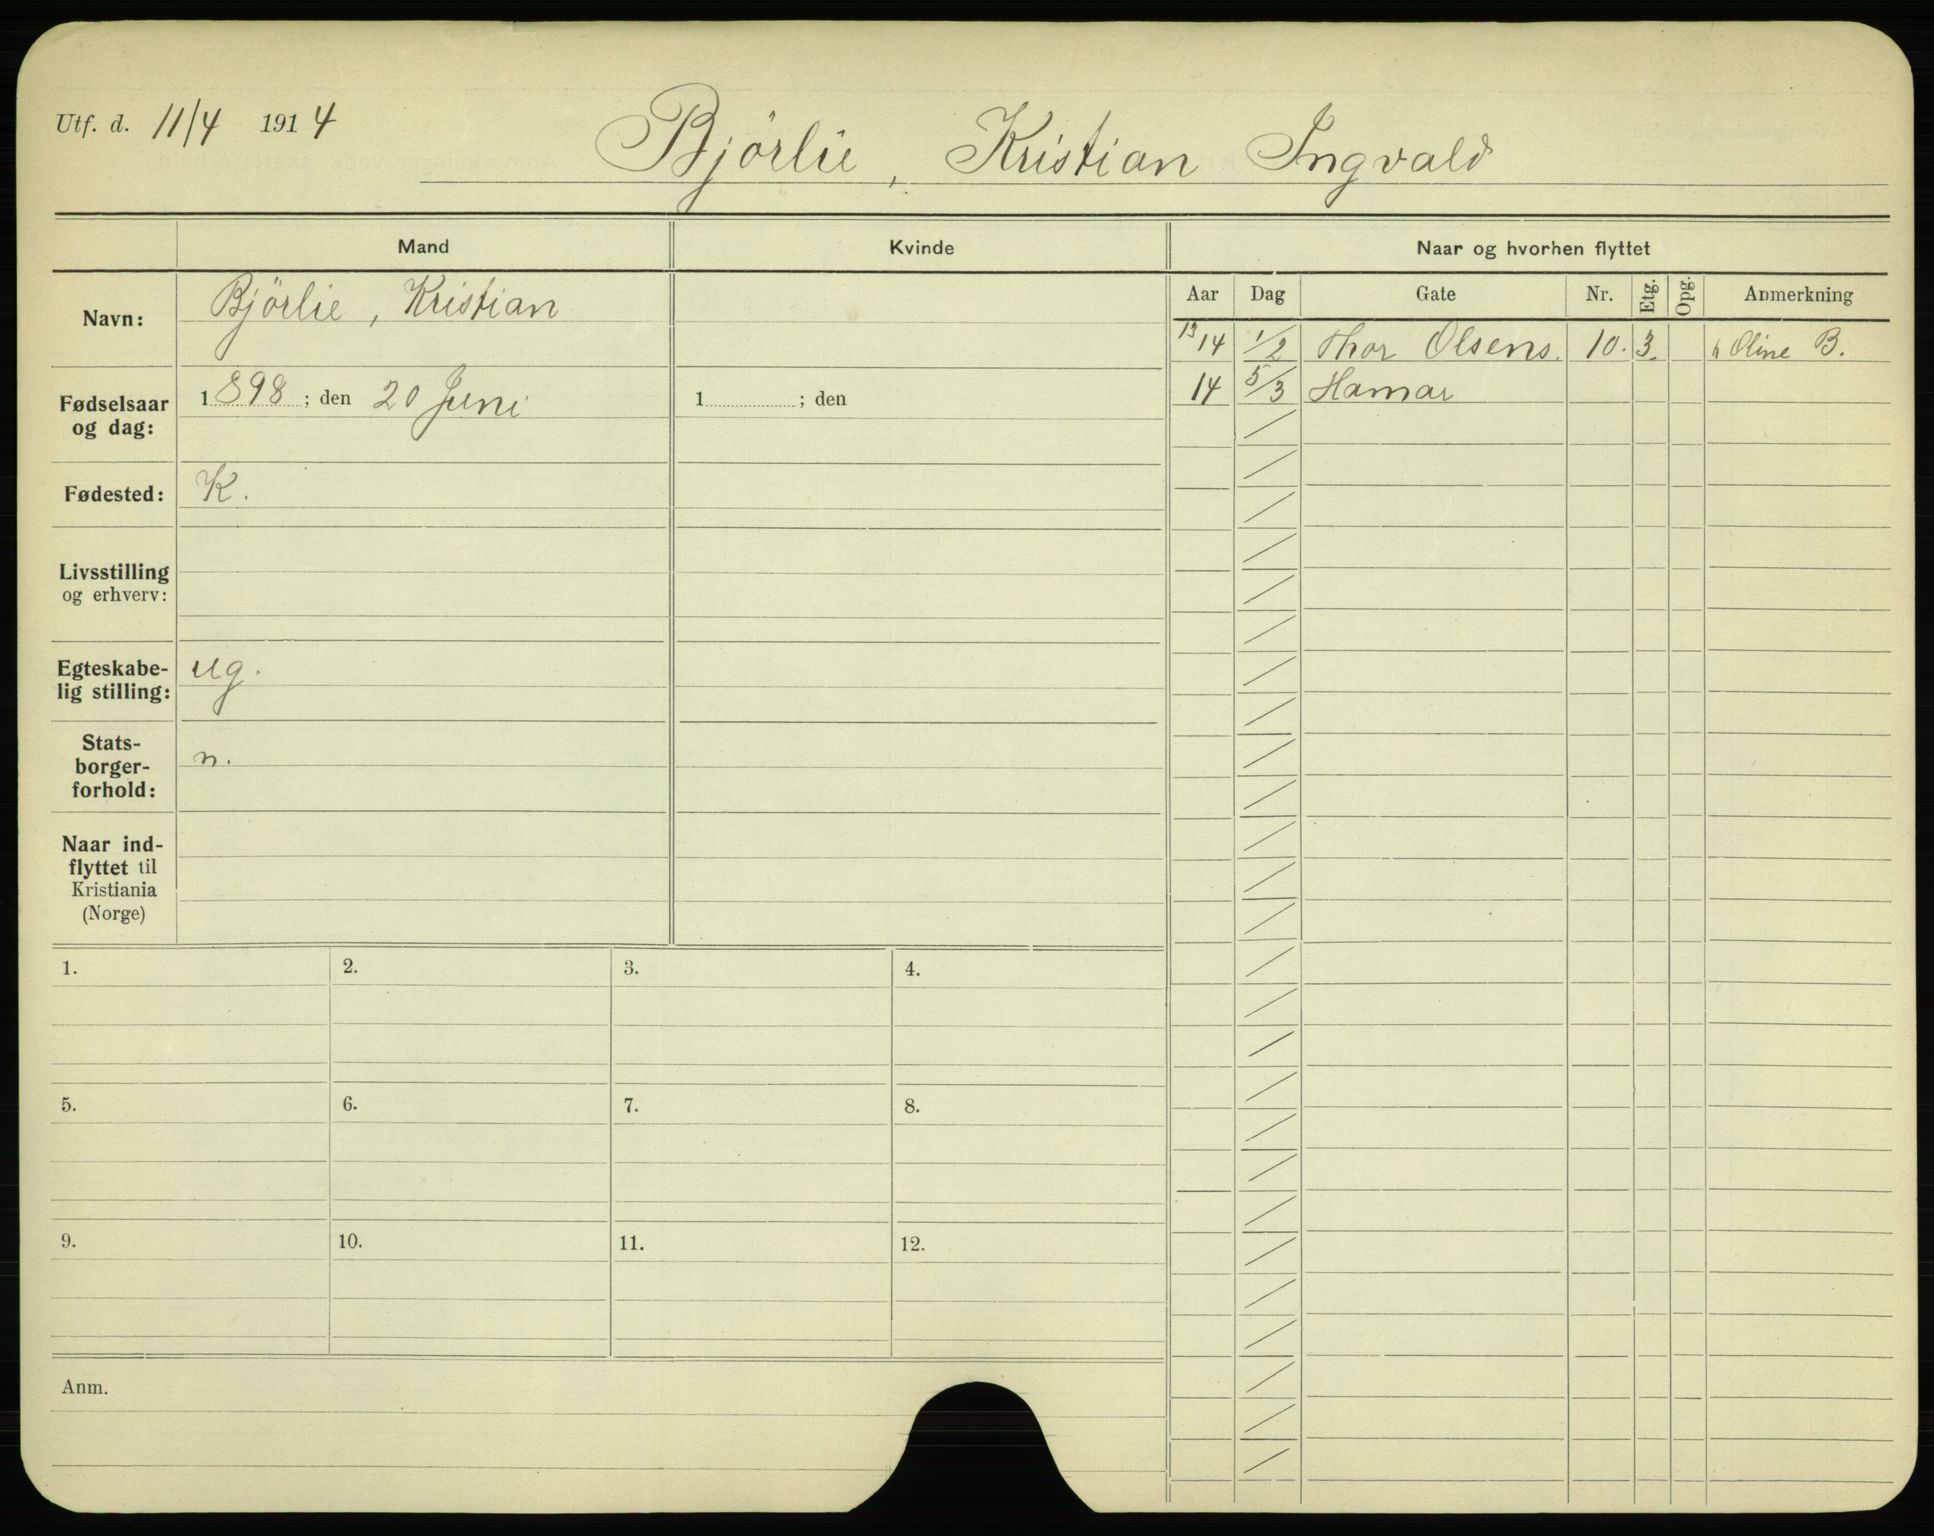 Utf. d. 11/4 1914
Bjørlie, Kristian Ingvald
Mand
Kvinde
Naar og hvorhen flyttet
Navn:
Bjørlie, Kristian
Fødselsaar
og dag:
1898; den 20 Juni
1 ; den
Fødested:
K.
Livsstilling
og erhverv:
Egteskabe-
lig stilling:
ug.
Stats-
borger-
forhold:
n.
Naar ind-
flyttet til
Kristiania
(Norge)
Aar Dag Gate Nr. Etg. Opg. Anmerkning
13 14 1/2 Thor Olsens. 10. 3. h Oline B.
14 5/3 Hamar
1. 2. 3. 4.
5. 6. 7. 8.
9. 10. 11. 12.
Anm.